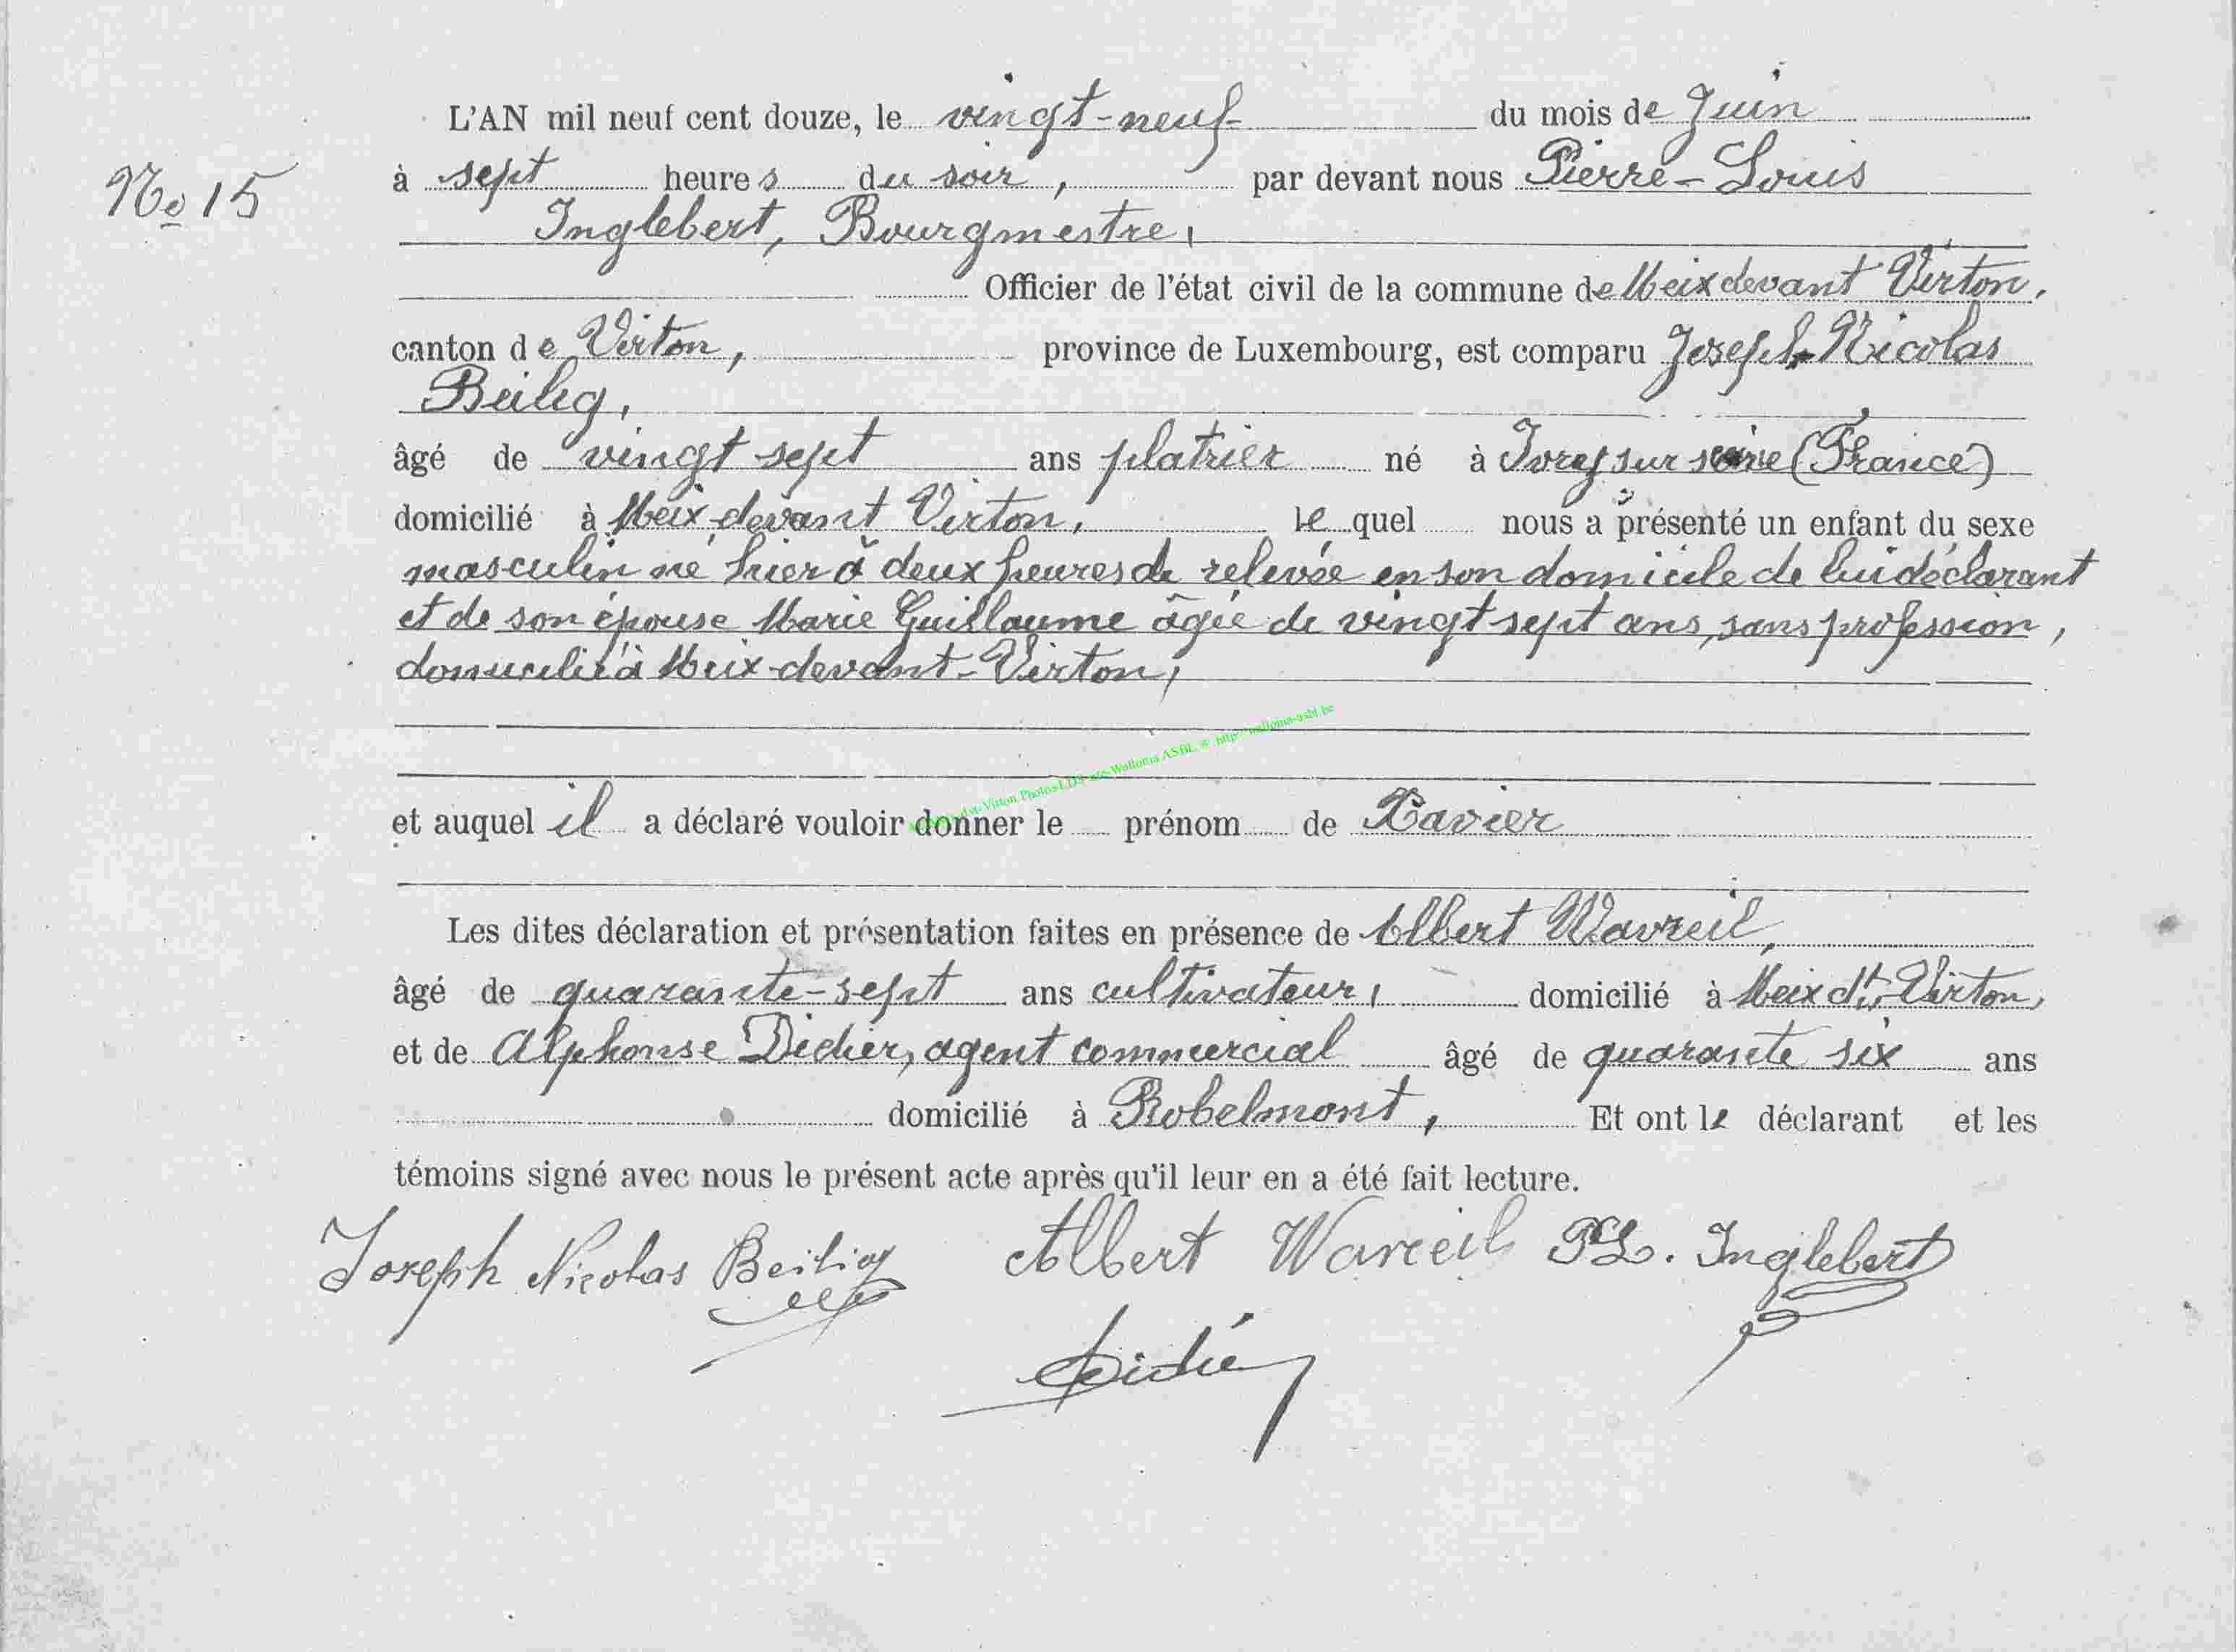 L'AN mil neuf cent douze, le vingt-neuf du mois de Juin
No 15
à sept heures du soir, par devant nous Pierre-Louis
Inglebert, Bourgmestre,
Officier de l'état civil de la commune de Meix devant Virton,
canton de Virton, province de Luxembourg, est comparu Joseph Nicolas
Beilig,
âgé de vingt sept ans platrier né à Ivry sur seine (France)
domicilié à Meix-devant Virton, lequel nous a présenté un enfant du sexe
masculin né hier à deux heures de relevée en son domicile de lui déclarant
et de son épouse Marie Guillaume âgée de vingt sept ans, sans profession,
domicilié à Meix-devant-Virton,
et auquel il a déclaré vouloir donner le prénom de Xavier
Les dites déclaration et présentation faites en présence de Albert Wavreil,
âgé de quarante-sept ans cultivateur, domicilié à Meix dt Virton,
et de Alphonse Didier, agent commercial âgé de quarante six ans
domicilié à Robelmont, Et ont le déclarant et les
témoins signé avec nous le présent acte après qu'il leur en a été fait lecture.
Joseph Nicolas Beilig Albert Wavreil PL. Inglebert
Didier